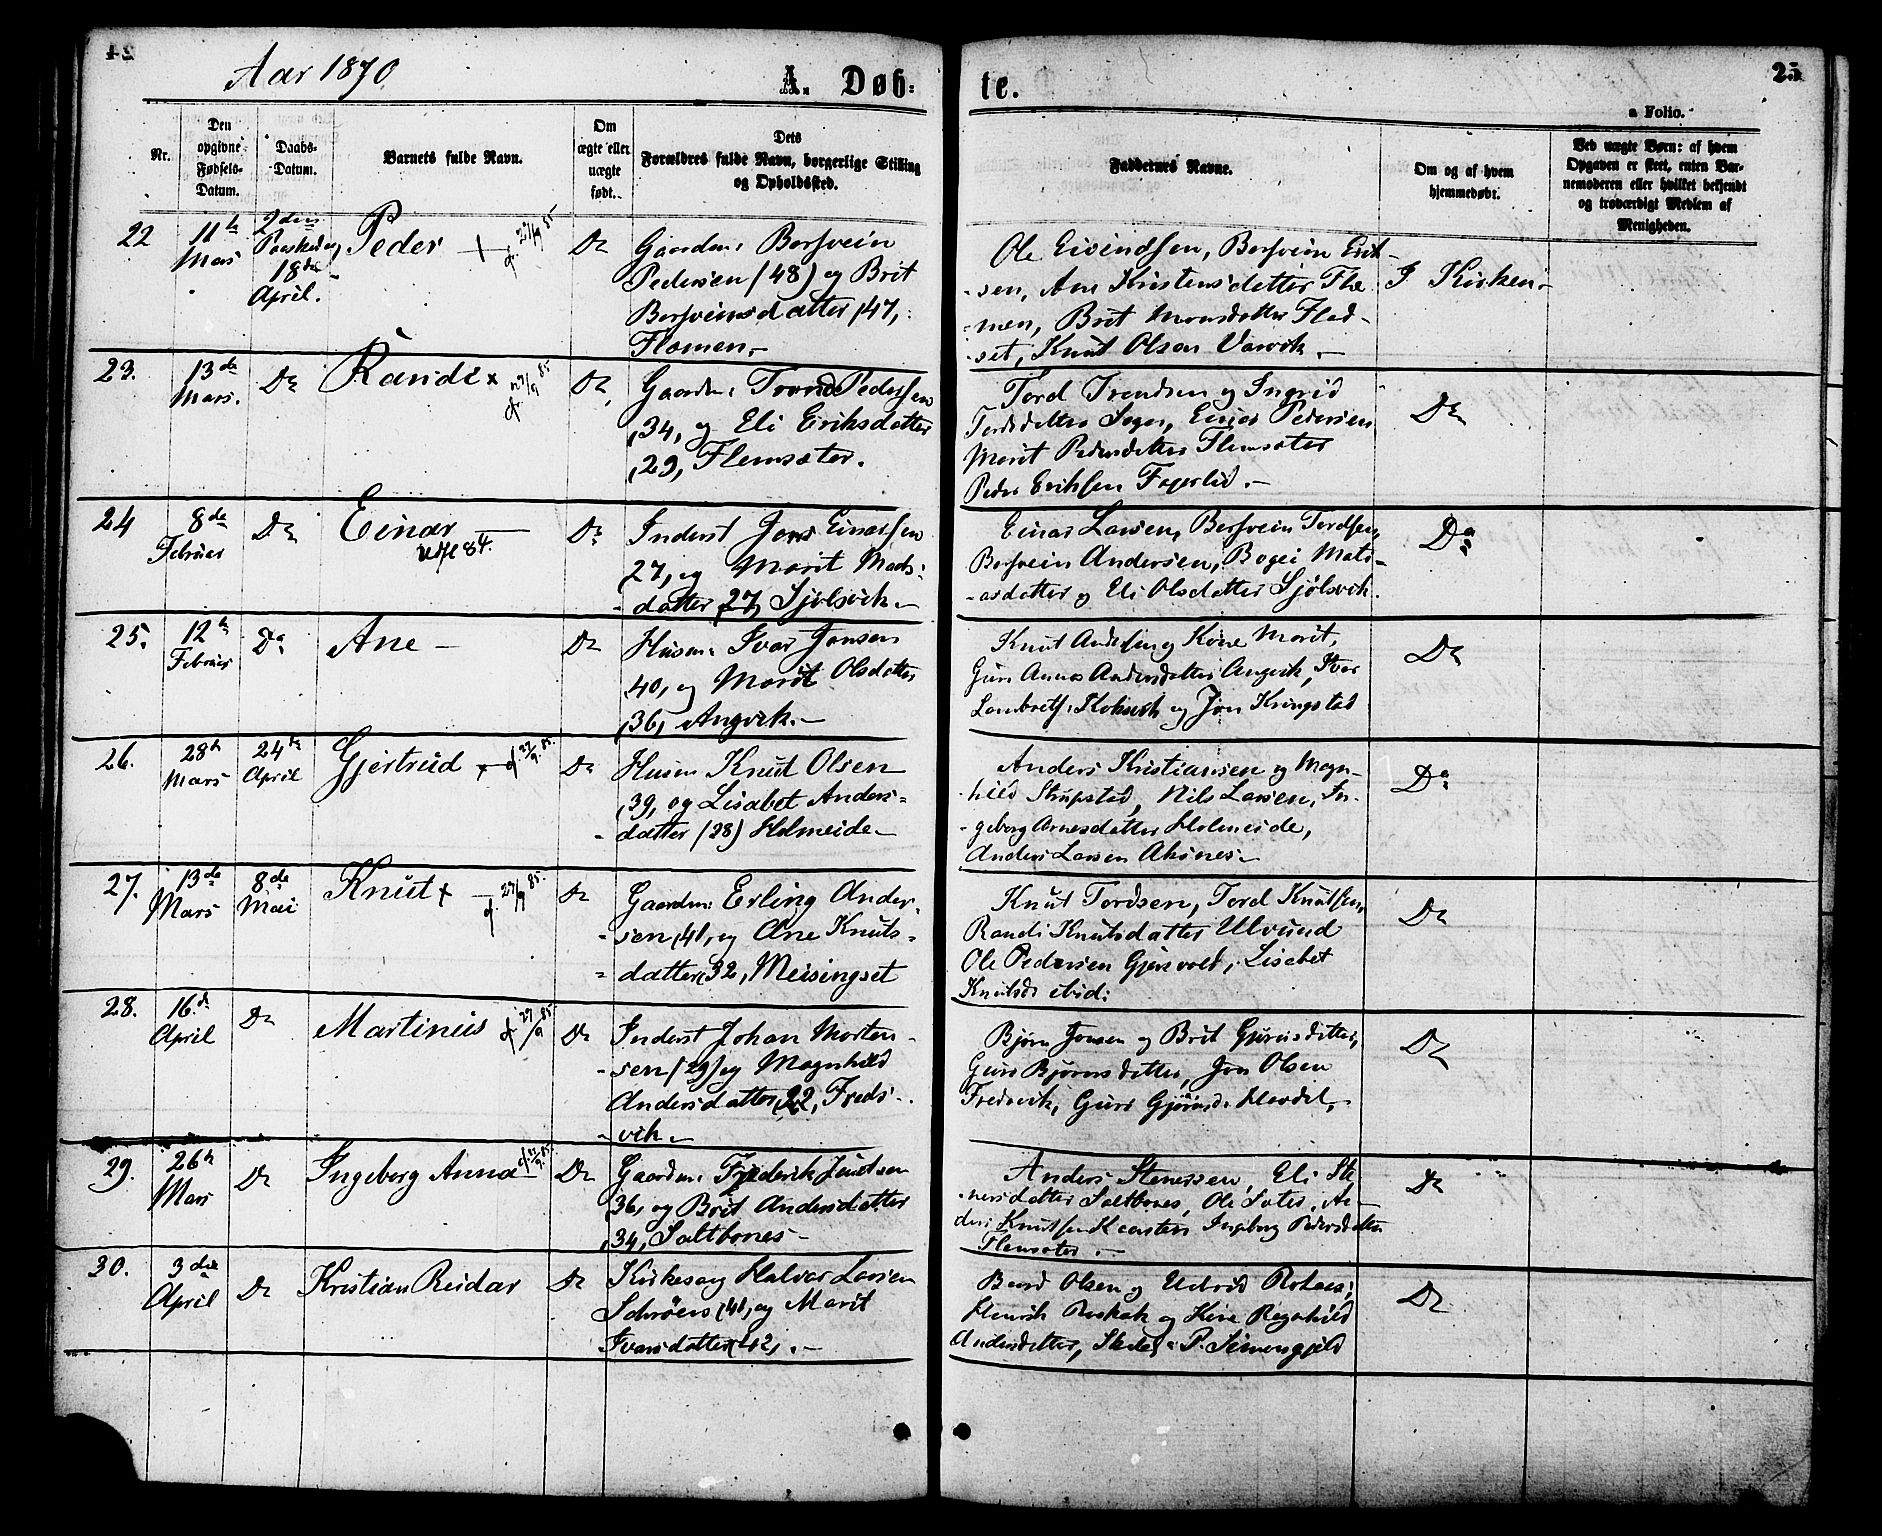 24
Aar 1870
A. Døb-
te.
25
a Folio.
Nr.
Den
opgivne
Fødsels-
Datum.
Daabs-
Datum.
Barnets fulde Navn.
Om
ægte eller
uægte
født.
Dets
Forældres fulde Navn, borgerlige Stilling
og Opholdssted.
Faddernes Navne.
Om og af hvem
hjemmedøbt.
Ved uægte Børn: af hvem
Opgaven er skeet, enten Bar-
nemoderen eller hvilket bekjendt
og troværdigt Medlem af
Menigheden.
22
11te
Mars
2den
Paaskedag
18de
April.
Peder
27/9 85
Do
Gaardm: Bersvein
Pedersen (48) og Brit
Bersveinsdatter (47,
Flemen,
Ole Eivindsen, Bersvein Erik-
-sen, Ane Kristensdatter Fle
-men, Brit Monsdatter Flad-
-set, Knut Olsen Varvik.
I Kirken
23.
13de
Mars.
Do
Randi x
27/9 85
Do
Gaardm: Trond Pedersen
,34, og Eli Eriksdatter
,29, Flemsæter.
Tord Trondsen og Ingrid
Tordsdatter Soger, Einar Pedersen
Marit Pedersdatter Flemsæter
Peder Eriksen Fagerlid.
Do
24
8de
Februar
Do
Einar
84.
Do
Inderst Jens Einarsen
27, og Marit Mads-
-datter 27, Sjølsvik
Einar Larsen, Bersvein Tordsen,
Bersvein Andersen, Bogei Mats-
datter og Eli Olsdatter Sjølsvik.
Do
25.
12te
Februar
Do
Ane
Do
Husm: Ivar Jonsen
40, og Marit Olsdatter
,36, Angvik.
Knut Andersen og Kone Marit,
Guri Annas Andersdatter Angvik, Ivar
Lambrets: og Jon Kringstad
Do
26.
28de
Mars
24de
April
Gjertrud
27/9 85.
Do
Husm Knut Olsen
,39, og Lisabet Anders-
-datter (28) Holmeide
Anders Kristiansen og Magn-
-hild Strupstad, Nils Larsen, In-
-geborg Arnesdatter Holmeide,
Anders Larsen Aksnes
Do
27.
13de
Mars
8de
Mai
Knut x
27/9 85.
Do
Gaardm: Erling Ander-
-sen ,41, og Ane Knuts-
-datter 32, Meisingset
Knut Tordsen, Tord Knutsen,
Randi Knutsdatter Ulvund
Ole Pedersen Gjersvold, Lisabet
Knutsdr ibid:
Do
28.
16de
April
Do
Martinus
27/9 85
Do
Inderst Johan Morten-
-sen (29) og Magnhild
Andersdatter 22, Freds-
-vik
Bjørn Jonsen og Brit Gjørusdatter,
Guri Bjørnsdatter, Jon Olsen
Fredsvik, Guri Gjørusd:
Do
29.
26de
Mars
Do
Ingeborg Anna
27/9 85
Do
Gaardm: Frederik Knudsen
36, og Brit Andersdatter
,34, Saltbones
Anders Stenersen, Eli Ste
-nersdatter Saltbones, Ole Sæter, An-
ders Knutsen Ingeborg Pedersdatter
Flemsæter.
Do
30.
3die
April
Do
Kristian Reidar
Do
Kirkesang Halvor Larsen
Schrøen ,41, og Marit
Ivarsdatter 42,
Baard Olsen og Rotaas,
Henrik og Kone Ragnhild
Andersdatter, P. Simongjeld
Do